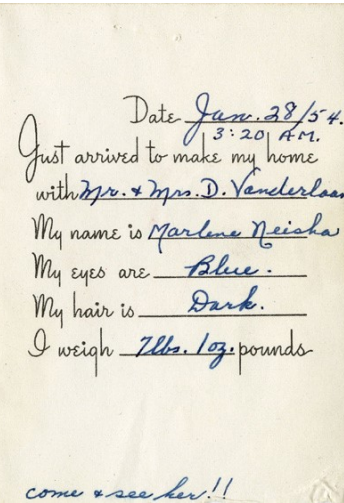 Date Jan. 28/54.
3:20 A.M.
Just arrived to make my home
with Mr. & Mrs. D. Vanderloos
My name is Marlene Neisha
My eyes are Blue.
My hair is Dark.
I weigh 7lbs. 1oz. pounds
come & see her!!